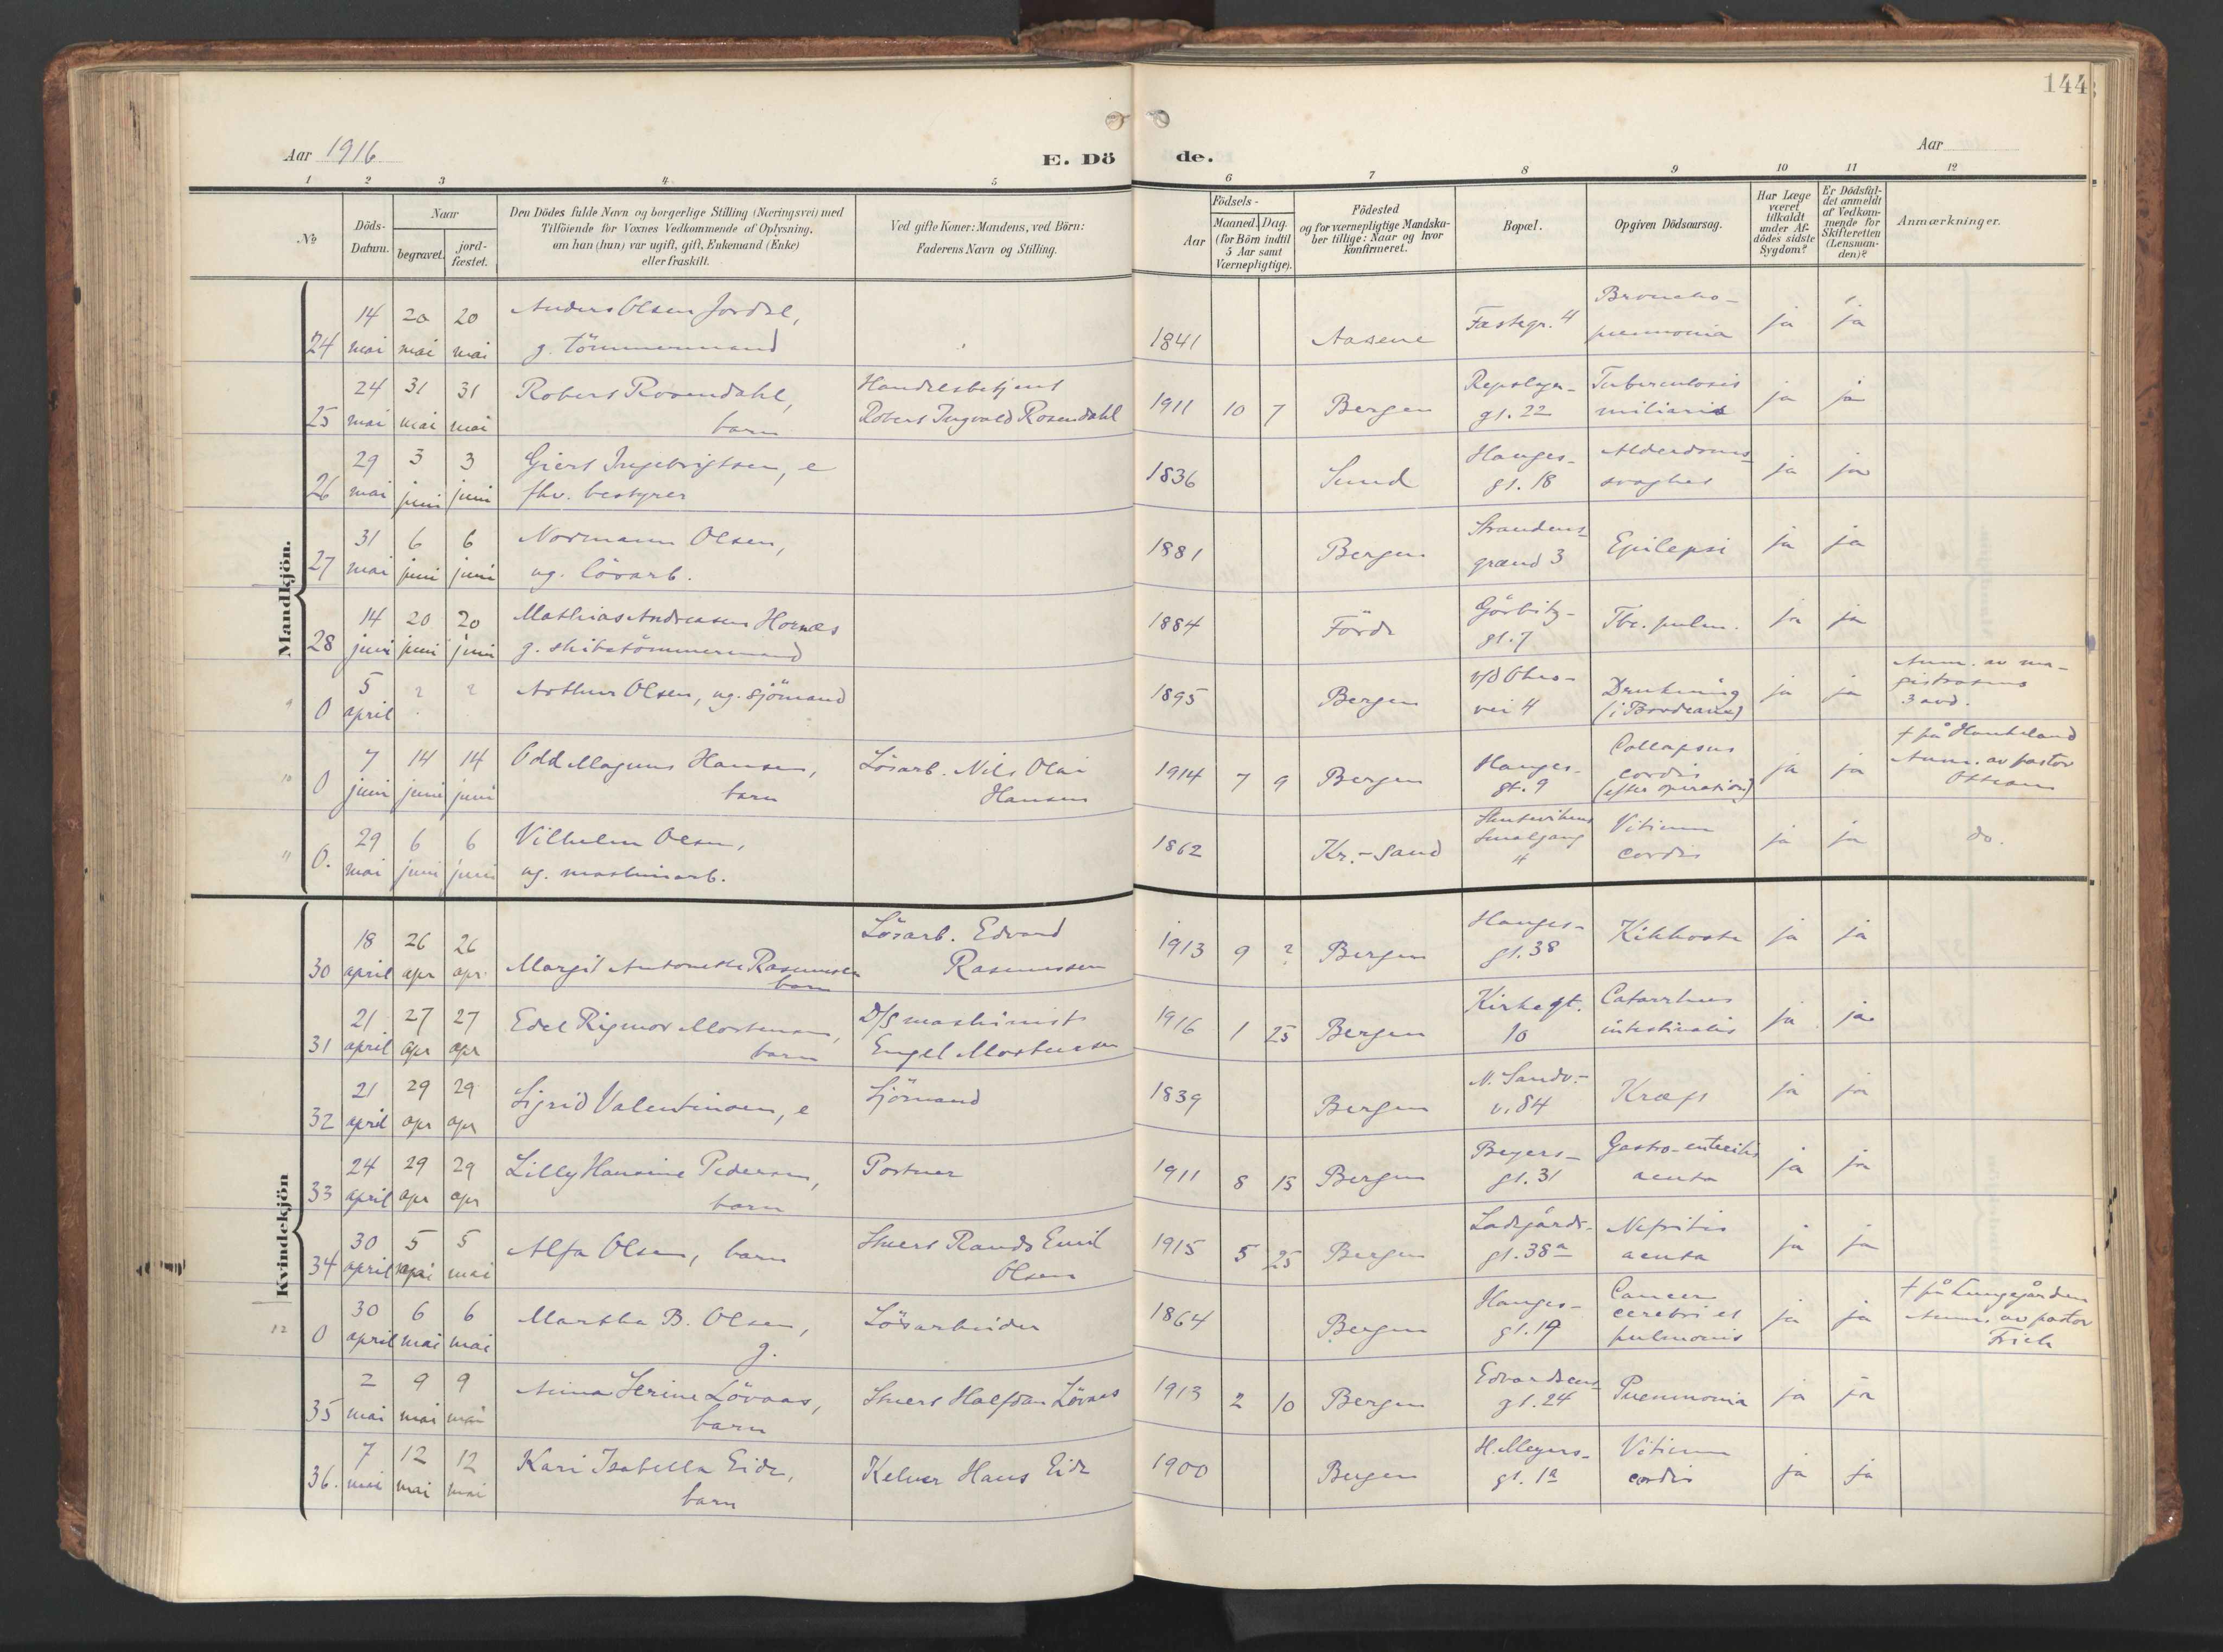 144
Aar 1916
E. Dö de.
Aar
1 2 3 4 5 6 7 8 9 10 11 12
№
Döds-Datum.
Naar
begravet.
jord-fæstet.
Den Dödes fulde Navn og borgerlige Stilling (Næringsvei) med
Tilföiende for Voxnes Vedkommende af Oplysning,
om han (hun) var ugift, gift, Enkemand (Enke)
eller fraskilt.
Ved gifte Koner: Mandens, ved Börn:
Faderens Navn og Stilling.
Födsels-
Aar
Maaned. Dag.
(for Börn indtil
5 Aar samt
Værnepligtige).
Födested
og for værnepligtige Mandska-
ber tillige: Naar og hvor
konfirmeret.
Bopæl.
Opgiven Dödsaarsag.
Har Læge
været
tilkaldt
under Af-
dödes sidste
Sygdom?
Er Dödsfal-
det anmeldt
af Vedkom-
mende for
Skifteretten
(Lensman-
den)?
Anmærkninger.
Mandkjön.
24 14 mai 20 mai 20 mai Anders Olsen Jordal,
g. tömmermand
1841 Aasene Fæstegr. 4 Broncho-
pneumonia ja ja
25 24 mai 31 mai 31 mai Robert Rosendahl,
barn
Handelsbetjent
Robert Ingvald Rosendahl
1911 10 7 Bergen Repslager-
gt. 22 Tuberculosis
miliaris ja ja
26 29 mai 3 juni 3 juni Giert Ingebrigtsen, e
fhv. bestyrer
1836 Sund Hauges-
gt. 18 Alderdoms-
svaghet ja ja
27 31 mai 6 juni 6 juni Normann Olsen,
ug. lösarb.
1881 Bergen Strandens-
grænd 3 Epilepsi ja ja
28 14 juni 20 juni 20 juni Mathias Andreasen Hornæs
g. skibstömmermand
1884 Förde Görbitz-
gt. 7 Tbc. pulm. ja ja
9 0 5 april ? ? Arthur Olsen, ug. sjömand
1895 Bergen
vei 4 Drukning
(i Bordeaux) ja ja Anm. av ma-
gistratens
3 avd.
10 0 7 juni 14 juni 14 juni Odd Magnus Hansen,
barn
Lösarb. Nils Olai
Hansen
1914 7 9 Bergen Hauges-
gt. 9 Collapsus
cordis
(efter operation) ja ja † på Haukeland
Anm. av pastor
11 0. 29 mai 6 juni 6 juni Vilhelm Olsen,
ug. maskinarb.
1862 Kr.-sand Skutevikens
Smalgang
4 Vitium
cordis ja ja do.
Kvindekjön
30 18 april 26 apr 26 apr. Margit Antonette Rasmussen
barn
Lösarb. Edvard
Rasmussen
1913 9 ? Bergen Hauges-
gt. 38 Kikhoste ja ja
31 21 april 27 apr 27 apr Edel Rigmor Mortensen,
barn
D/S maskinist
Engel Mortensen
1916 1 25 Bergen Kirkegt.
10 Catarrhus
intestinalis ja ja
32 21 april 29 apr 29 apr Sigrid Valentinsen, e
Sjömand
1839 Bergen N. Sandv.-
v. 84 Kræft ja ja
33 24 april 29 apr 29 apr Lilly Hansine Pedersen,
barn
Portner
1911 8 15 Bergen Beyers-
gt. 31 Gastro-enteritis
acuta ja ja
34 30 april 5 mai 5 mai Alfa Olsen, barn
Stuert Rands Emil
Olsen
1915 5 25 Bergen Ladegårds-
gt. 38a Nefritis
acuta ja ja
12 0 30 april 6 mai 6 mai Martha B. Olsen,
g.
Lösarbeider
1864 Bergen Hauges-
gt. 19 Cancer
cerebri et
pulmonis ja ja † på Lungegården
Anm. av pastor
Frich
35 2 mai 9 mai 9 mai Anna Serine Lövaas,
barn
Stuert Halfdan Lövaas
1913 2 10 Bergen Edvardsens-
gt. 24 Pneumonia ja ja
36. 7 mai 12 mai 12 mai Kari Isabella Eide,
barn
Kelner Hans Eide
1900 Bergen H. Meyers-
gt. 1a Vitium
cordis ja ja